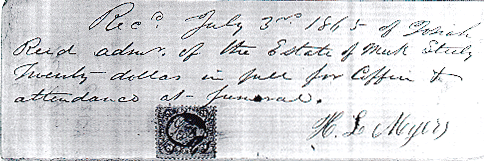 Rec.d July 3rd 1865 of Josiah
Reed admr. of the Estate of Steely
Twenty dollars in full for Coffin &
attendance at funeral.
H. L. Myers